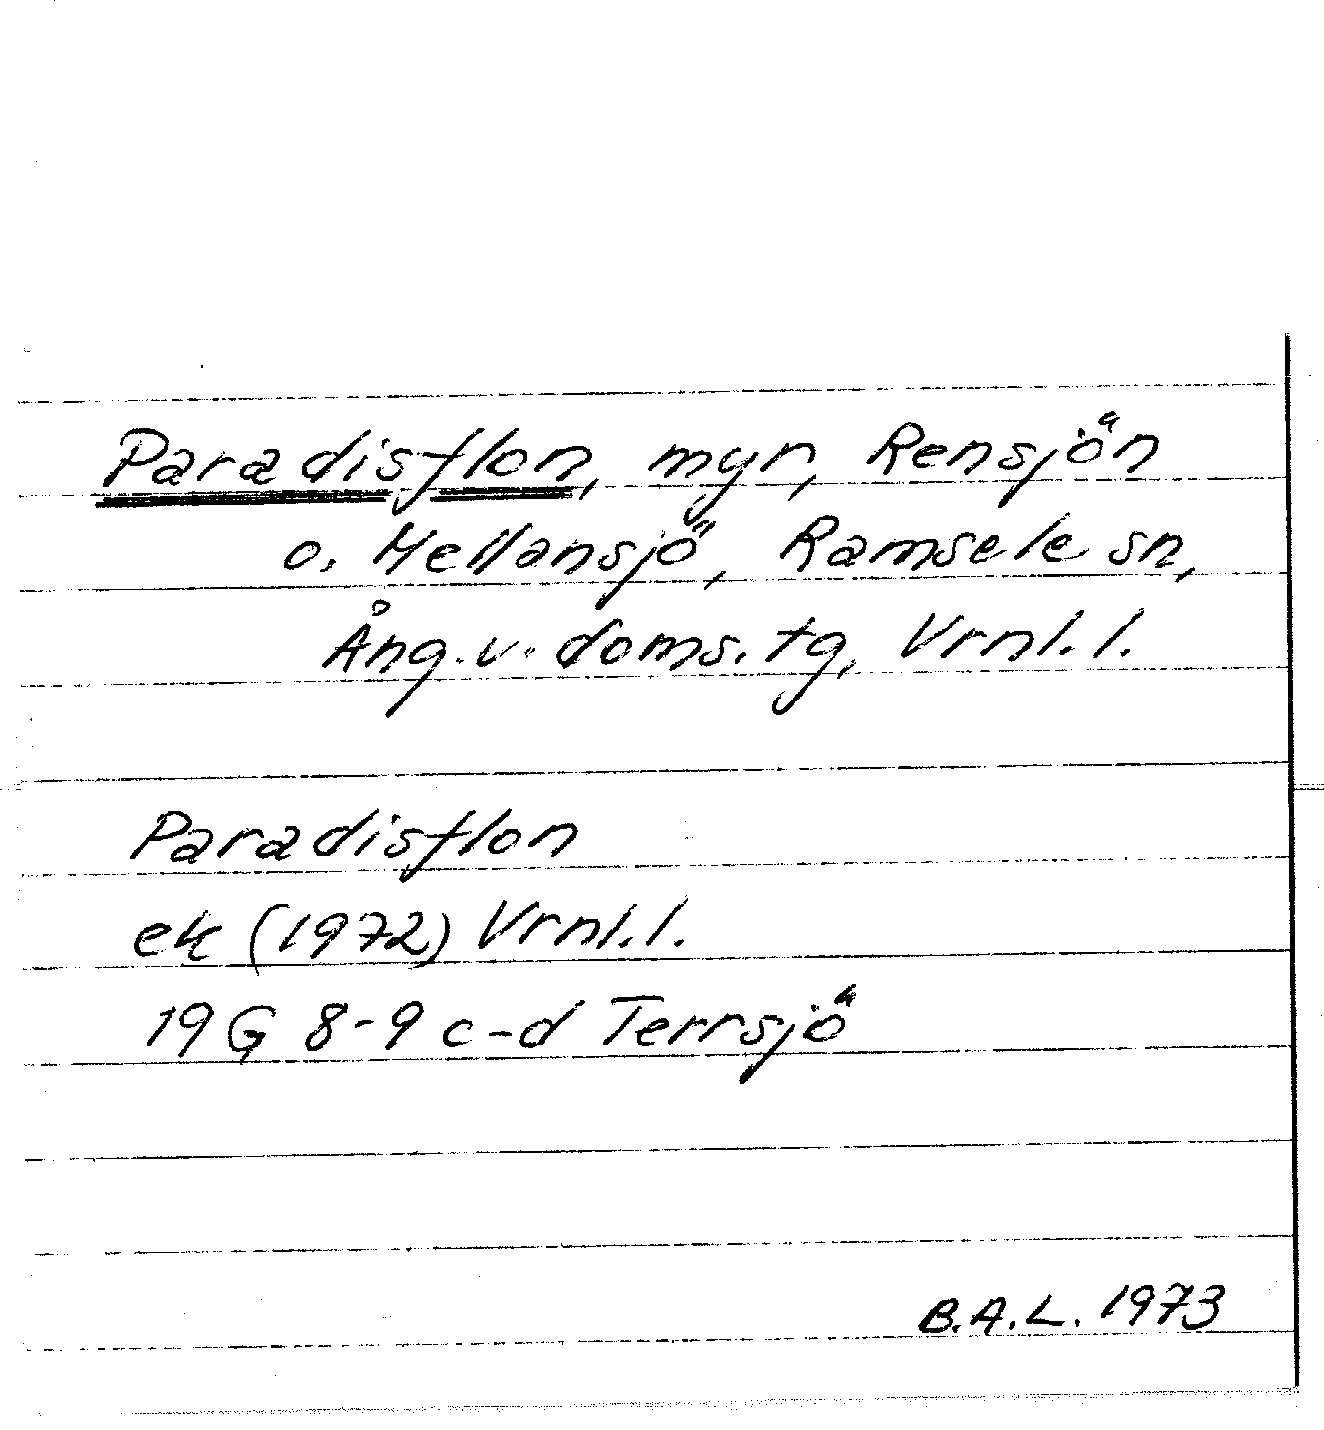 Paradisflon, myr, Rensjön
o. Mellansjö, Ramsele sn,
Ång. v. doms. tg, Vrnl. l.
Paradisflon
ek (1972) Vrnl. l.
19 G 8-9 c-d Terrsjö
B.A.L. 1973